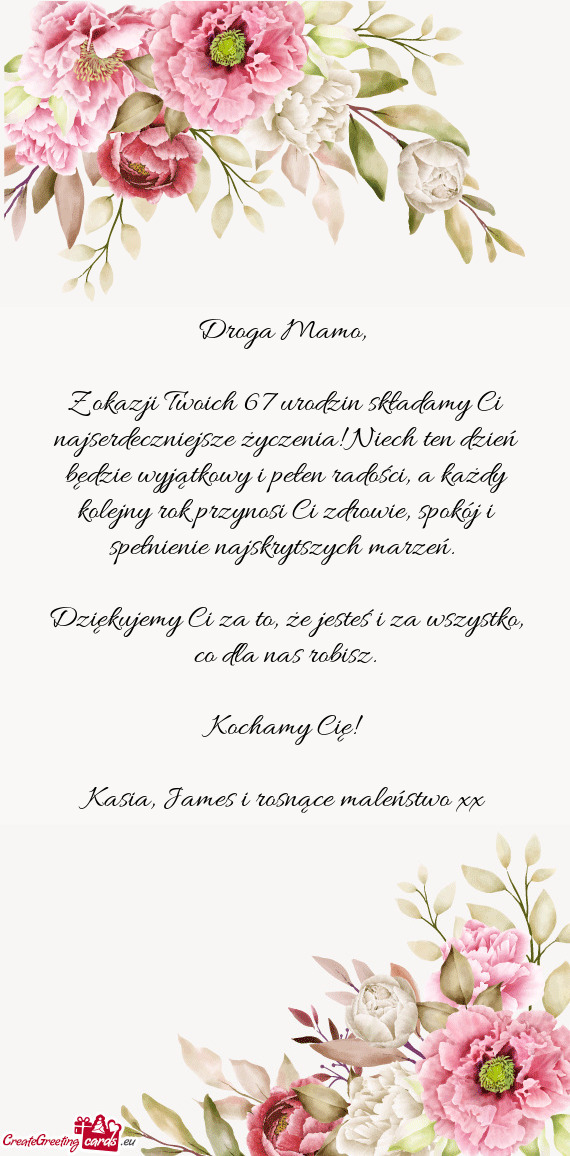 Droga Mamo,
Z okazji Twoich 67 urodzin składamy Ci
najserdeczniejsze życzenia! Niech ten dzień
będzie wyjątkowy i pełen radości, a każdy
kolejny rok przynosi Ci zdrowie, spokój i
spełnienie najskrytszych marzeń.
Dziękujemy Ci za to, że jesteś i za wszystko,
co dla nas robisz.
Kochamy Cię!
Kasia, James i rosnące maleństwo xx
CreateGreeting cards .eu